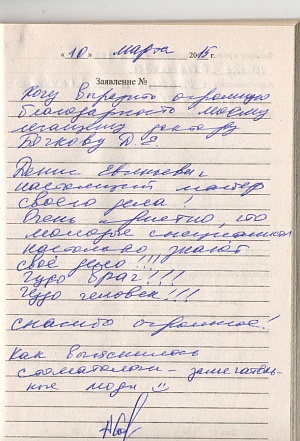 «10» марта 2015 г.
Заявление №
Хочу выразить огромную
благодарность моему
лечащему доктору
Бочкову Д.Е
Денис Евгеньевич
настоящий мастер
своего дела!
Очень приятно, что
молодые специалисты
настолько знают
своё дело!!!
Чудо врач!!!
Чудо человек!!!
Спасибо огромное!
Как выяснилось
стоматологи – замечатель-
ные люди